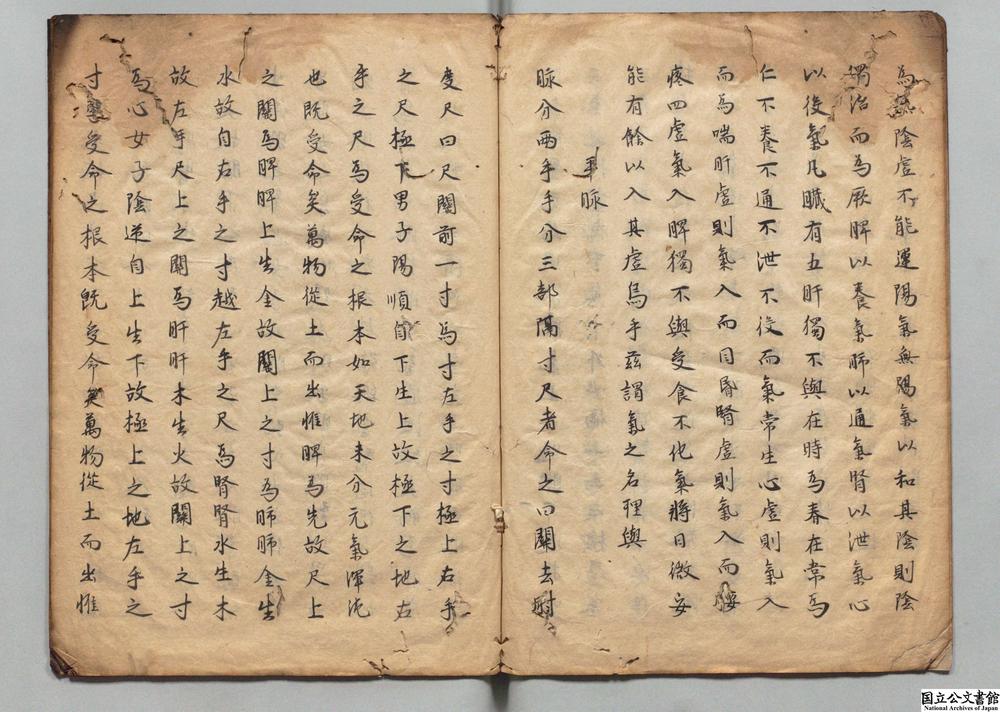 為 陰虛不能運陽氣無陽氣以和其陰則陰
獨治而為厥脾以養氣肺以通氣腎以泄氣心
以役氣凡臟有五肝獨不與在時為春在常為
仁不養不通不泄不役而氣常生心虛則氣入
而為喘肝虛則氣入而目昏腎虛則氣入而腰
疼四虛氣入脾獨不與受食不化氣將日微安
能有餘以入其虛烏乎茲謂氣之名理與
平脉
脉分兩手手分三部隔寸尺者命之曰關去肘
度尺曰尺關前一寸為寸左手之寸極上右手
之尺極下男子陽順自下生上故極下之地右
手之尺為受命之根本如天地未分元氣渾沌
也既受命矣萬物從土而出惟脾為先故尺上
之關為脾脾上生金故關上之寸為肺肺金生
水故自右手之寸越左手之尺為腎腎水生木
故左手尺上之關為肝肝木生火故關上之寸
為心女子陰逆自上生下故極上之地左手之
寸 受命之根本既受命矣萬物從土而出惟
国立公文書館
National Archives of Japan